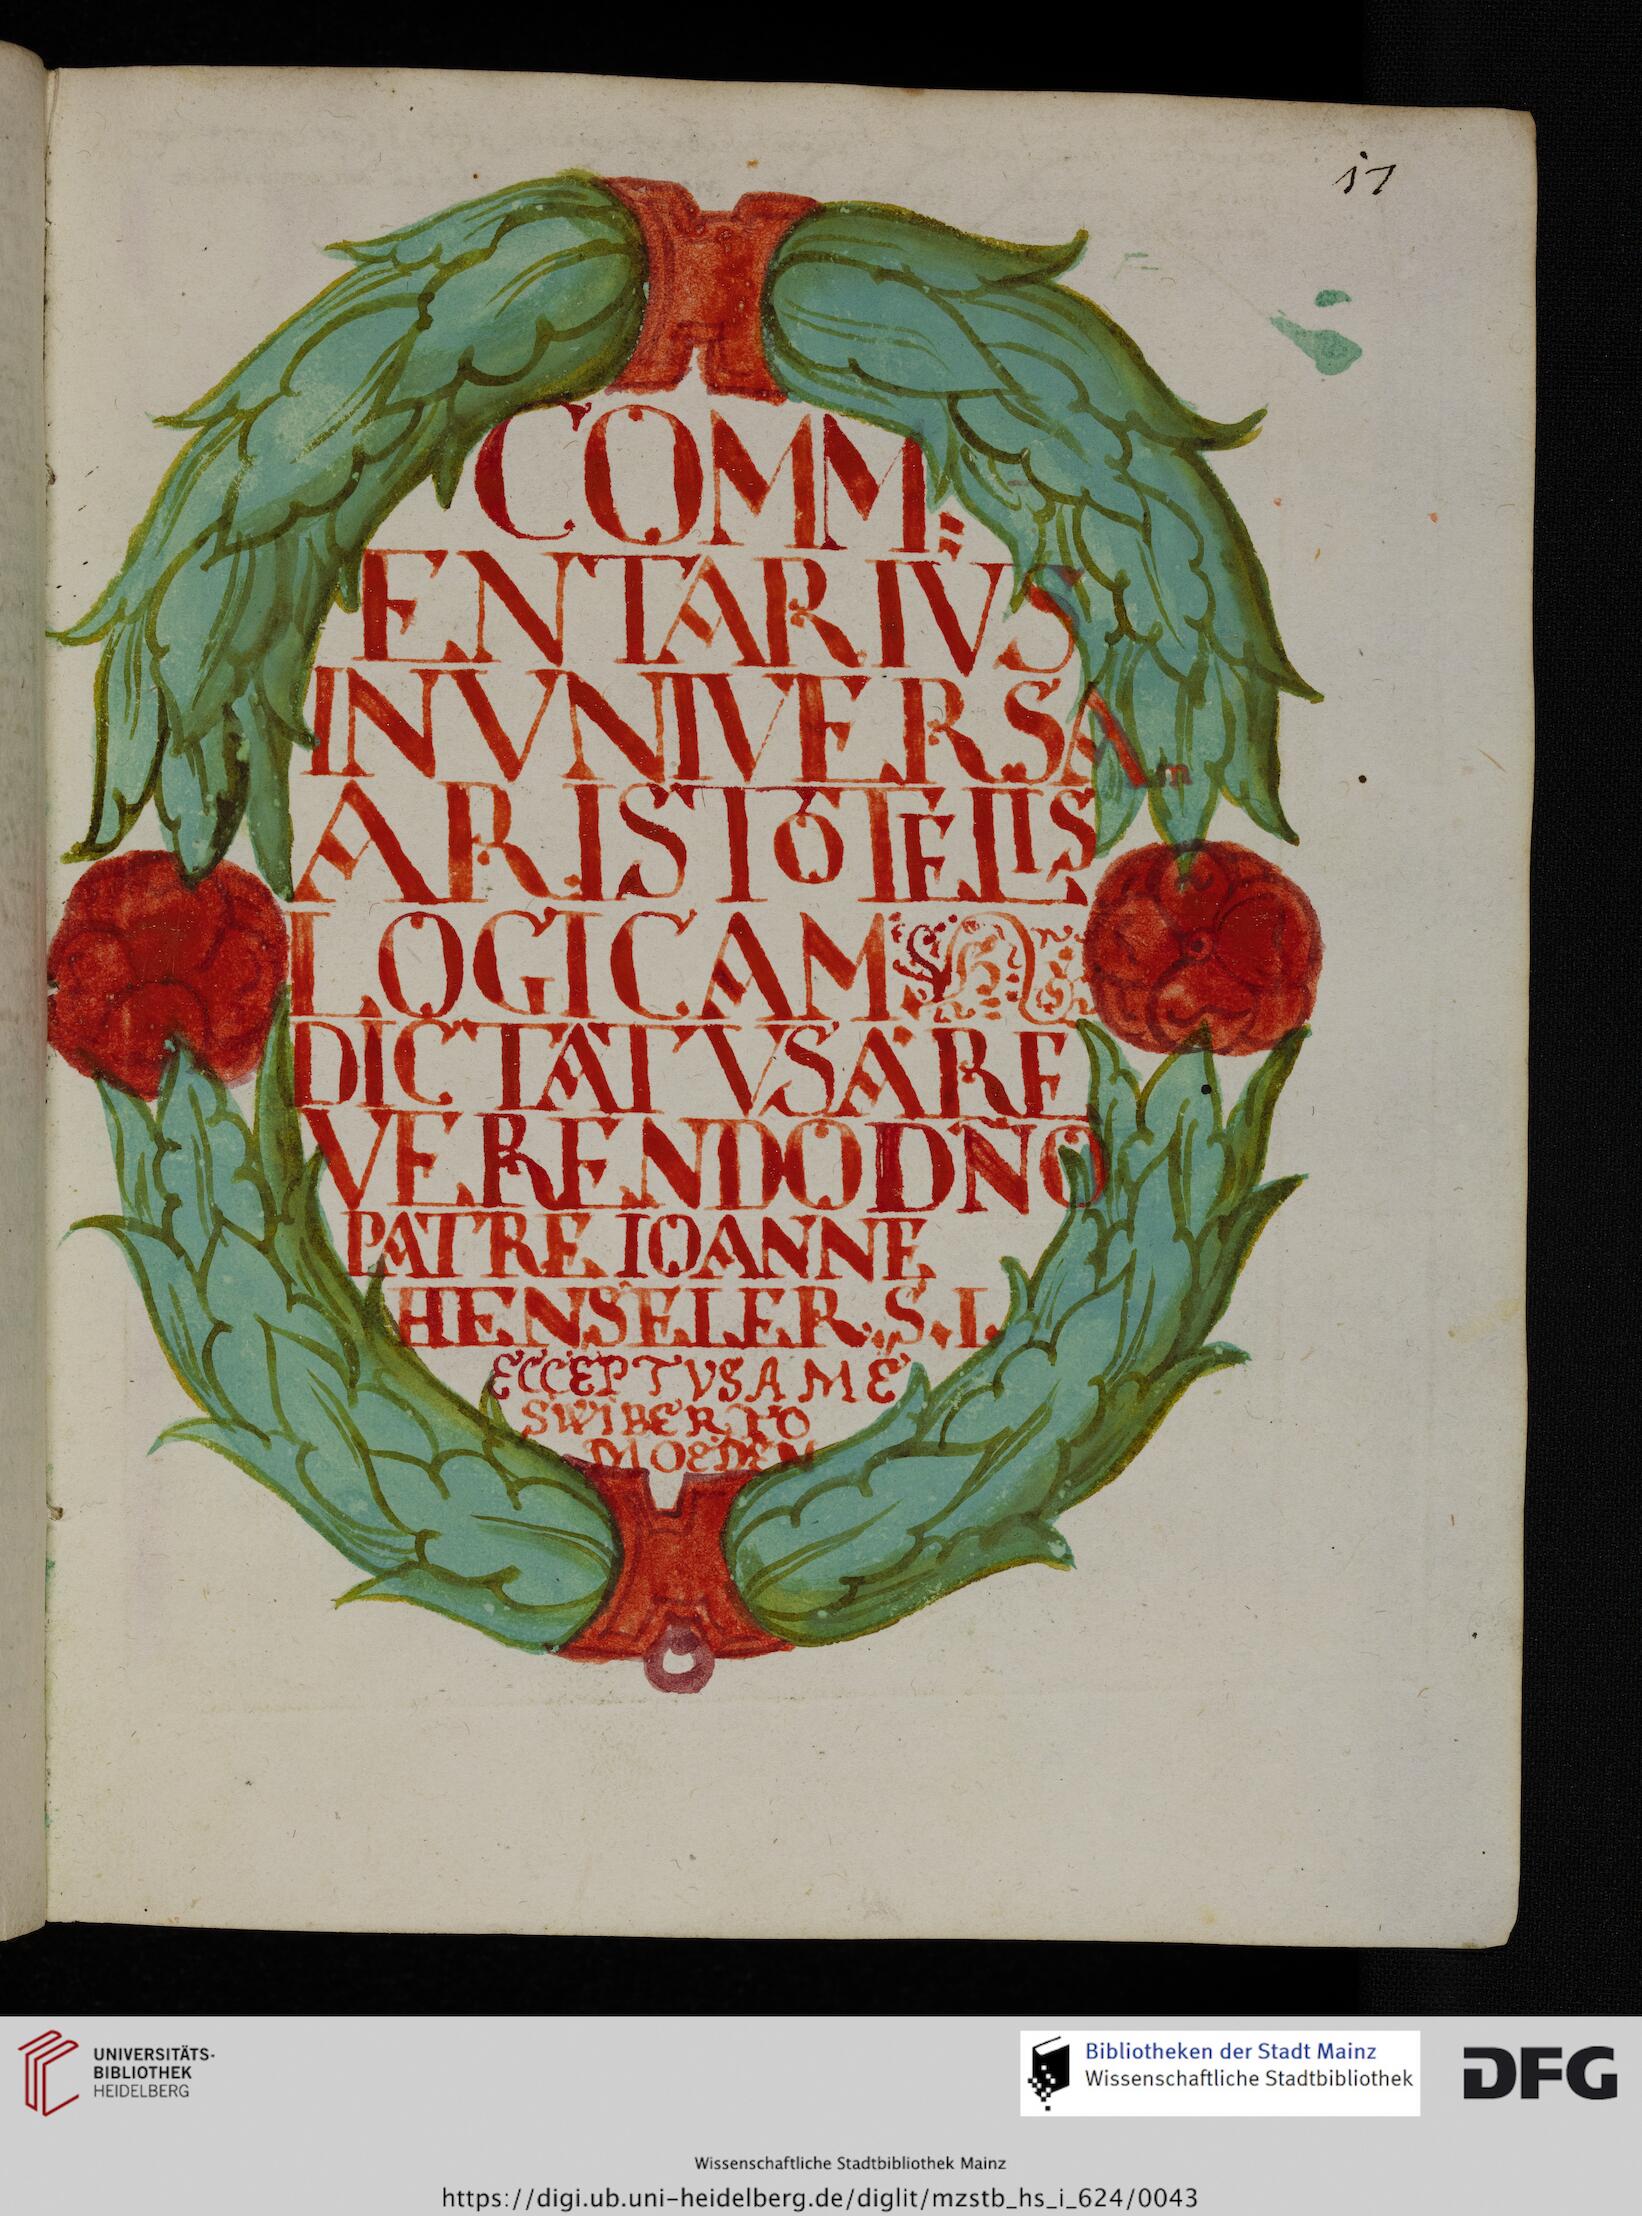 17
COMM=
ENTARIVS
IN VNIVERSAm
ARISTOTELIS
LOGICAM
DICTATVS A RE
VERENDO DÑO
PATRE IOANNE
HENSELER. S. I.
ECCEPTVS A ME
SWIBERTO
MOEDEN
UNIVERSITÄTS-
BIBLIOTHEK
HEIDELBERG
Bibliotheken der Stadt Mainz
Wissenschaftliche Stadtbibliothek
DFG
Wissenschaftliche Stadtbibliothek Mainz
https://digi.ub.uni-heidelberg.de/diglit/mzstb_hs_i_624/0043